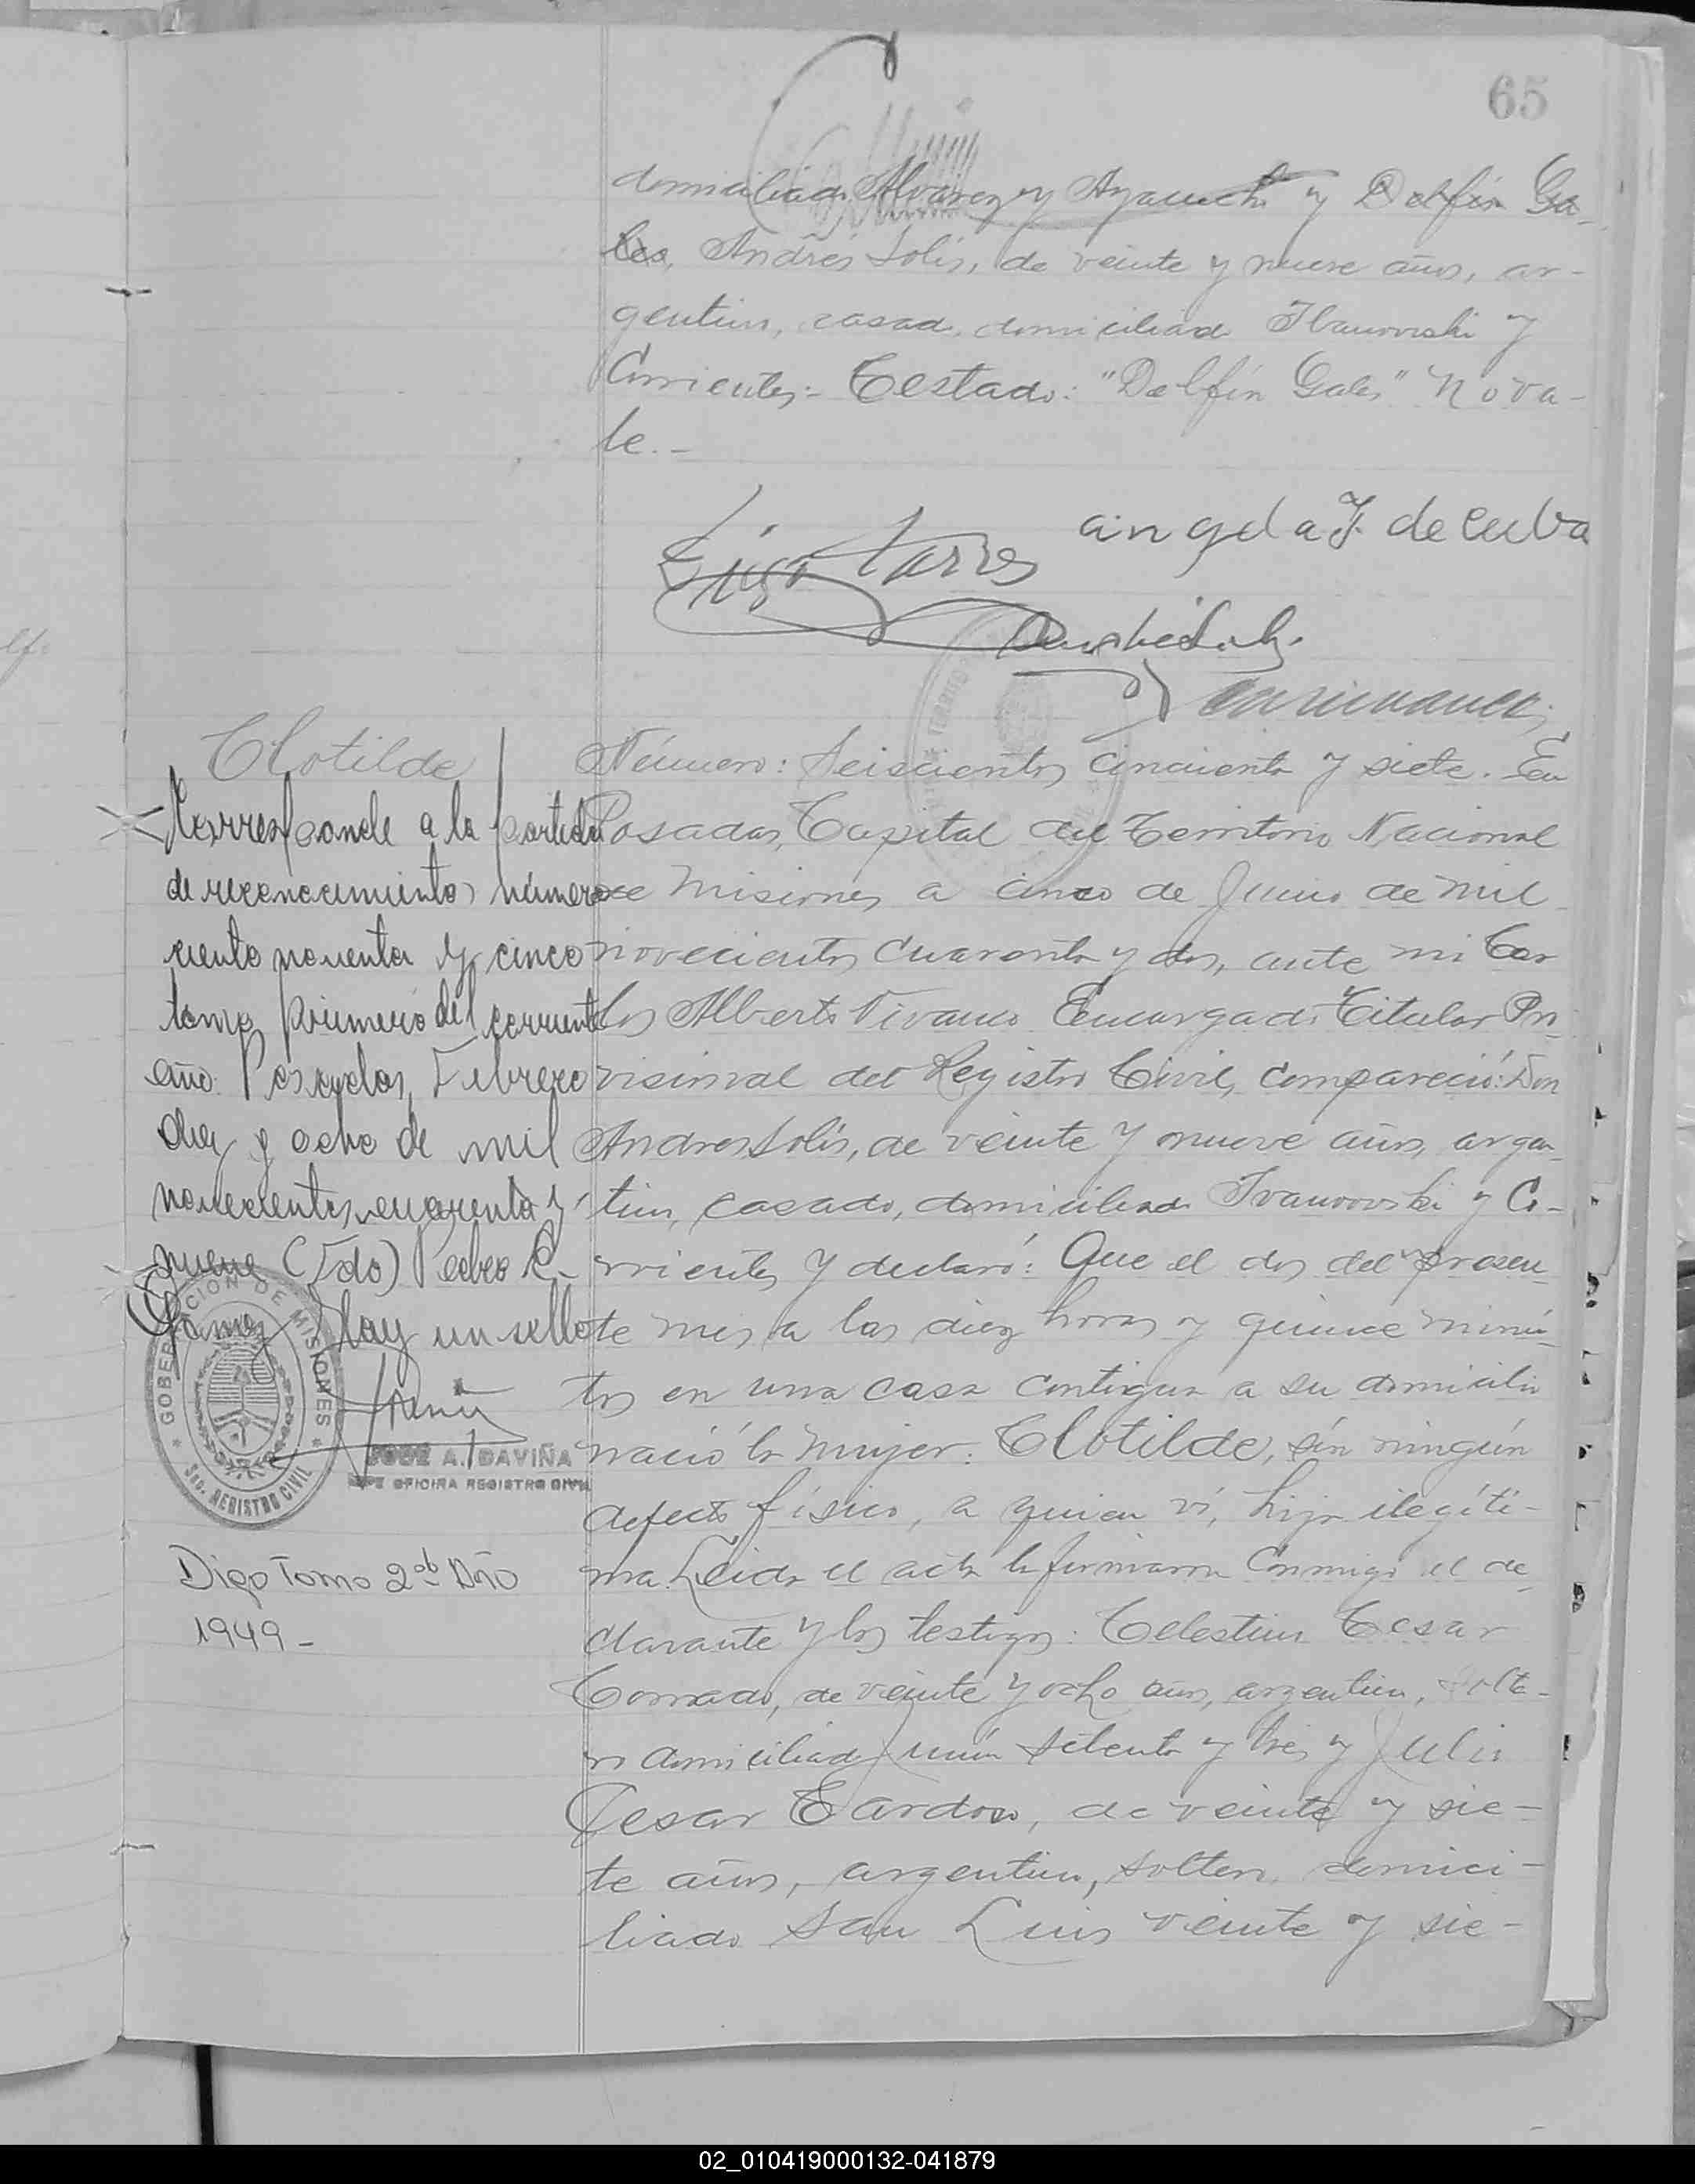 65
domiciliado Alvarez y Ayacucho y Delfín Ga-
les, Andrés Solis, de veinte y nueve años, ar-
gentino, casado, domiciliado Ibanowski y
Corrientes:- Testado: "Delfín Gales" No va-
le.-
angela F. de cuba
Clotilde
Corresponde a la partida
de reconocimiento número
ciento noventa y cinco
tomo primero del corriente
año. Posadas, Febrero
diez y ocho de mil
novecientos cuarenta y
nueve (Fdo) Pedro C.
Gomez Hay un sello
GOBERNACION DE MISIONES
Sec. REGISTRO CIVIL
JOSE A. DAVIÑA
JEFE OFICINA REGISTRO CIVIL
Digo Tomo 2do Año
1949-
Número: Seiscientos cincuenta y siete. En
Posadas, Capital del Territorio Nacional
de Misiones a cinco de Junio de mil
novecientos cuarenta y dos, ante mi Car
los Alberto Vivanco Encargado Titular Pro
visional del Registro Civil, compareció: Don
Andres Solis, de veinte y nueve años, argen
tino, casado, domiciliado Ivanowski y Co-
rrientes y declaró: Que el dos del presen
te mes a las diez horas y quince minu
tos en una casa contigua a su domicilio
nació la mujer: Clotilde, sin ningún
defecto físico, a quien ví, hija ilegíti-
ma. Leida el acta la firmaron conmigo el de
clarante y los testigos: Celestino Cesar
Conrado, de veinte y ocho años, argentino, solte-
ro domiciliado Junín setenta y tres y Julio
Cesar Cardozo, de veinte y sie-
te años, argentino, soltero, domici-
liado San Luis veinte y sie-
02_010419000132-041879